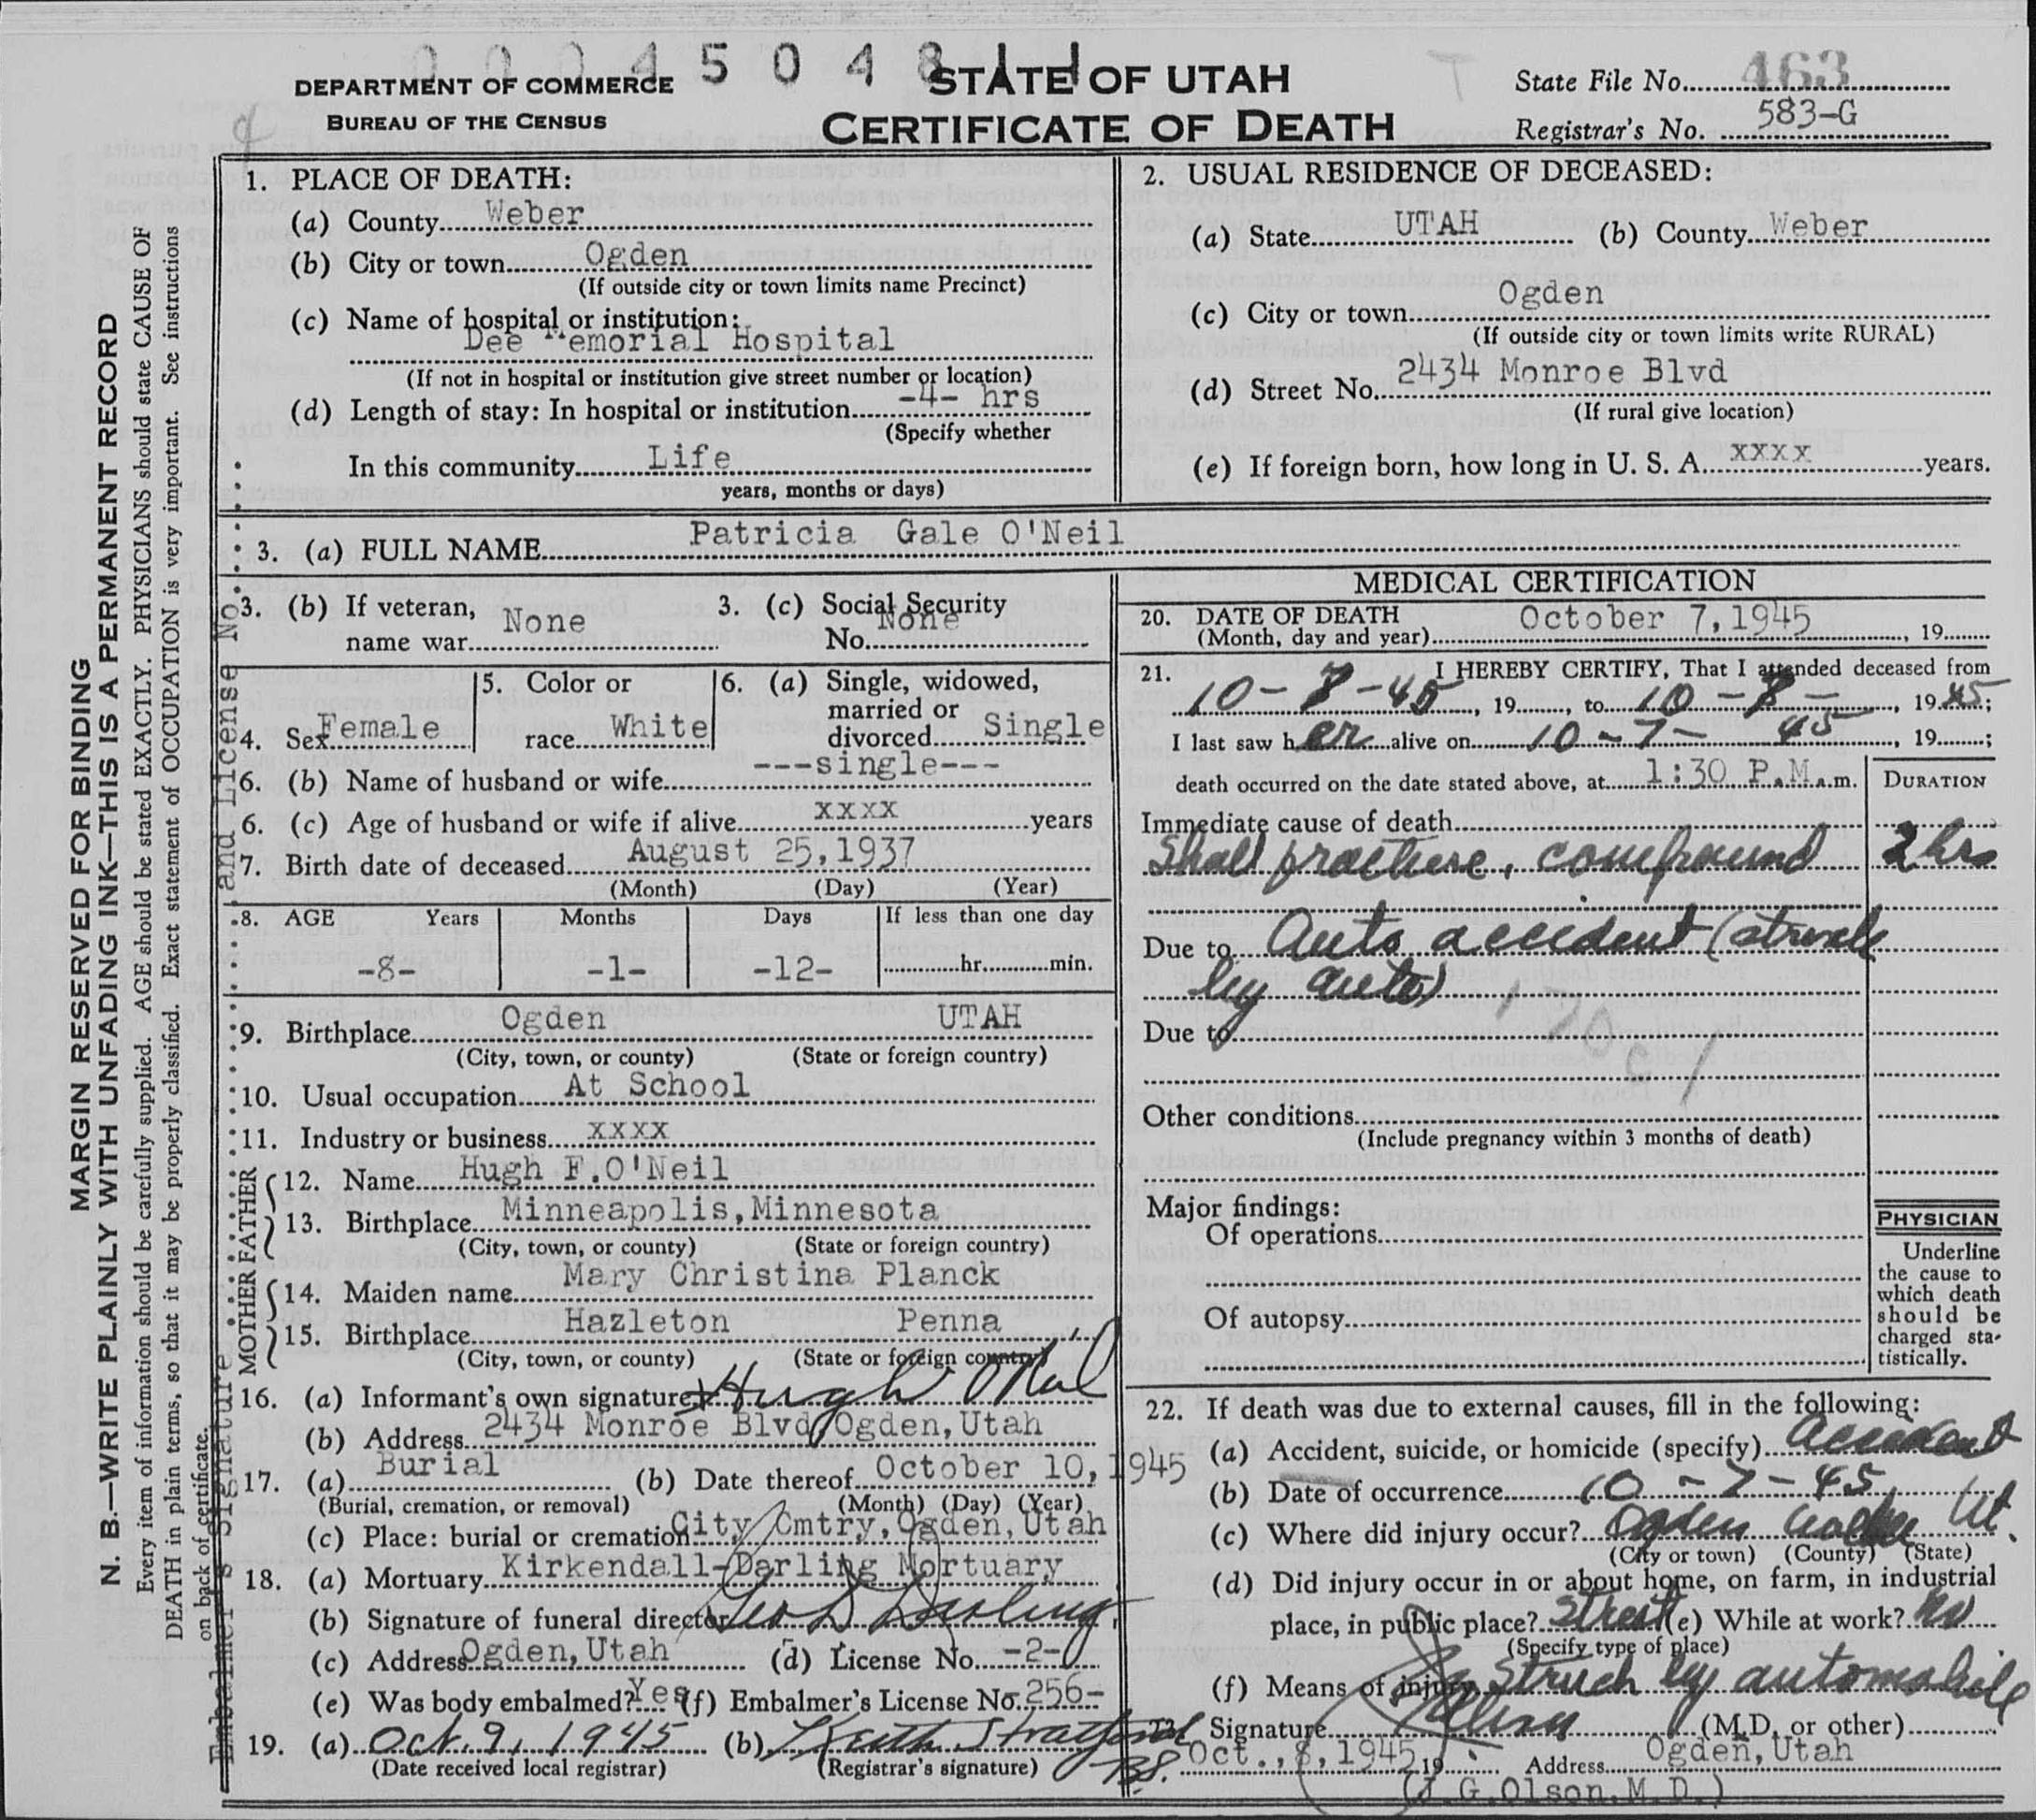 0004504811
DEPARTMENT OF COMMERCE
BUREAU OF THE CENSUS
STATE OF UTAH
CERTIFICATE OF DEATH
State File No. 463
Registrar's No. 583-G
MARGIN RESERVED FOR BINDING
N. B.—WRITE PLAINLY WITH UNFADING INK—THIS IS A PERMANENT RECORD
Every item of information should be carefully supplied. AGE should be stated EXACTLY. PHYSICIANS should state CAUSE OF
DEATH in plain terms, so that it may be properly classified. Exact statement of OCCUPATION is very important. See instructions
on back of certificate.
Embalmer's Signature and License No.
1. PLACE OF DEATH:
(a) County Weber
(b) City or town Ogden
(If outside city or town limits name Precinct)
(c) Name of hospital or institution:
Dee Memorial Hospital
(If not in hospital or institution give street number or location)
(d) Length of stay: In hospital or institution -4- hrs
(Specify whether
In this community Life
years, months or days)
2. USUAL RESIDENCE OF DECEASED:
(a) State UTAH (b) County Weber
(c) City or town Ogden
(If outside city or town limits write RURAL)
(d) Street No. 2434 Monroe Blvd
(If rural give location)
(e) If foreign born, how long in U. S. A. xxxx years.
3. (a) FULL NAME Patricia Gale O'Neil
3. (b) If veteran, name war None
3. (c) Social Security No. None
4. Sex Female
5. Color or race White
6. (a) Single, widowed, married or divorced Single
6. (b) Name of husband or wife ---single---
6. (c) Age of husband or wife if alive xxxx years
7. Birth date of deceased August 25, 1937
(Month) (Day) (Year)
8. AGE Years Months Days If less than one day
-8- -1- -12- hr. min.
9. Birthplace Ogden UTAH
(City, town, or county) (State or foreign country)
10. Usual occupation At School
11. Industry or business xxxx
FATHER
12. Name Hugh F.O'Neil
13. Birthplace Minneapolis, Minnesota
(City, town, or county) (State or foreign country)
MOTHER
14. Maiden name Mary Christina Planck
15. Birthplace Hazleton Penna
(City, town, or county) (State or foreign country)
16. (a) Informant's own signature Hugh O'Neil
(b) Address 2434 Monroe Blvd, Ogden, Utah
17. (a) Burial (b) Date thereof October 10, 1945
(Burial, cremation, or removal) (Month) (Day) (Year)
(c) Place: burial or cremation City Cmtry, Ogden, Utah
18. (a) Mortuary Kirkendall-Darling Mortuary
(b) Signature of funeral director Geo D Darling
(c) Address Ogden, Utah (d) License No. -2-
(e) Was body embalmed? Yes (f) Embalmer's License No. 256-
19. (a) Oct. 9, 1945 (b) Keith Stratford
(Date received local registrar) (Registrar's signature)
MEDICAL CERTIFICATION
20. DATE OF DEATH October 7, 1945
(Month, day and year) , 19
21. I HEREBY CERTIFY, That I attended deceased from
10-7-45, 19 , to 10-7-, 1945;
I last saw her alive on 10-7-45, 19 ;
death occurred on the date stated above, at 1:30 P.M. a.m.
DURATION
Immediate cause of death
Skull fracture, compound 2 hrs
Due to Auto accident (struck
by auto)
Due to
170c1
Other conditions
(Include pregnancy within 3 months of death)
Major findings:
Of operations
Of autopsy
PHYSICIAN
Underline
the cause to
which death
should be
charged sta-
tistically.
22. If death was due to external causes, fill in the following:
(a) Accident, suicide, or homicide (specify) Accident
(b) Date of occurrence 10-7-45
(c) Where did injury occur? Ogden Weber Ut.
(City or town) (County) (State)
(d) Did injury occur in or about home, on farm, in industrial
place, in public place? Street (e) While at work? No
(Specify type of place)
(f) Means of injury Struck by automobile
23. Signature (M.D. or other)
Oct., 8, 1945, 19 Address Ogden, Utah
(J.G.Olson.M.D.)